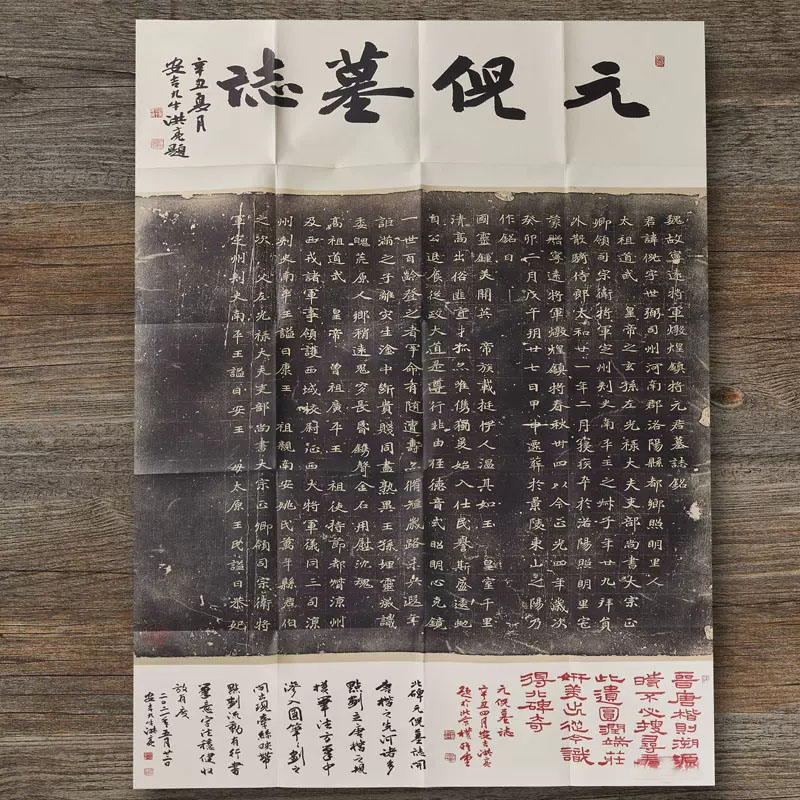 元倪墓誌
辛丑夏月
安吉九牛洪亮題
魏故寧遠將軍燉煌鎮將元君墓誌銘
君諱倪字世弼司州河南郡洛陽縣都鄉照明里人
太祖道武 皇帝之玄孫左光祿大夫吏部尚書大宗正
卿領司宗衛將軍定州刺史南平王之
子年廿九拜員
外散騎侍郎太和廿一年二月寢疾卒於洛陽照明里宅
蒙贈寧遠將軍燉煌鎮將春秋卅四以今正光四年歲次
癸卯二月戊午朔廿七日甲申遷葬於景陵東山之陽乃
作銘曰
國靈鍾美開英 帝族載挺伊人溫其如玉 皇室千里
清高出俗匪直
唯儁獨
始入仕民譽斯盛遠地
自公退食從政大道是遵行非由徑德音式昭明心克鏡
一世百齡登之者罕命有隨遭壽
脩短嚴路未
遐年
誰滿之子離灾生淦中斷貴賤同盡孰異王孫埋靈
誡
委
荒原人鄉稍遠鬼
長昏鐫聲金石用慰沈魂
高祖道武 皇帝 曾祖廣平王 祖使持節都督涼州
及西戎諸軍事領護西域校尉
西大將軍儀同三司涼
州刺史南平王謚曰康王 祖親南安姚氏萬年縣君伯
之次 父左光祿大夫吏部尚書大宗正卿領司宗衛將
軍定州刺史南平王謚曰安王 母太原王氏謚曰恭妃
晉唐楷則溯源
曉不必搜尋
此遺圓潤端莊
妍美出從今識
得北碑奇
元倪墓誌
辛丑四月安吉洪亮
題於
北碑元倪墓誌開
唐楷之先河諸多
點劃立唐楷之規
模筆法方筆中
滲入圓筆
劃之
間出現牽絲映帶
點劃流動有行書
筆意字法穩健收
放有度
二〇二一年五月廿二日
安吉九牛洪亮